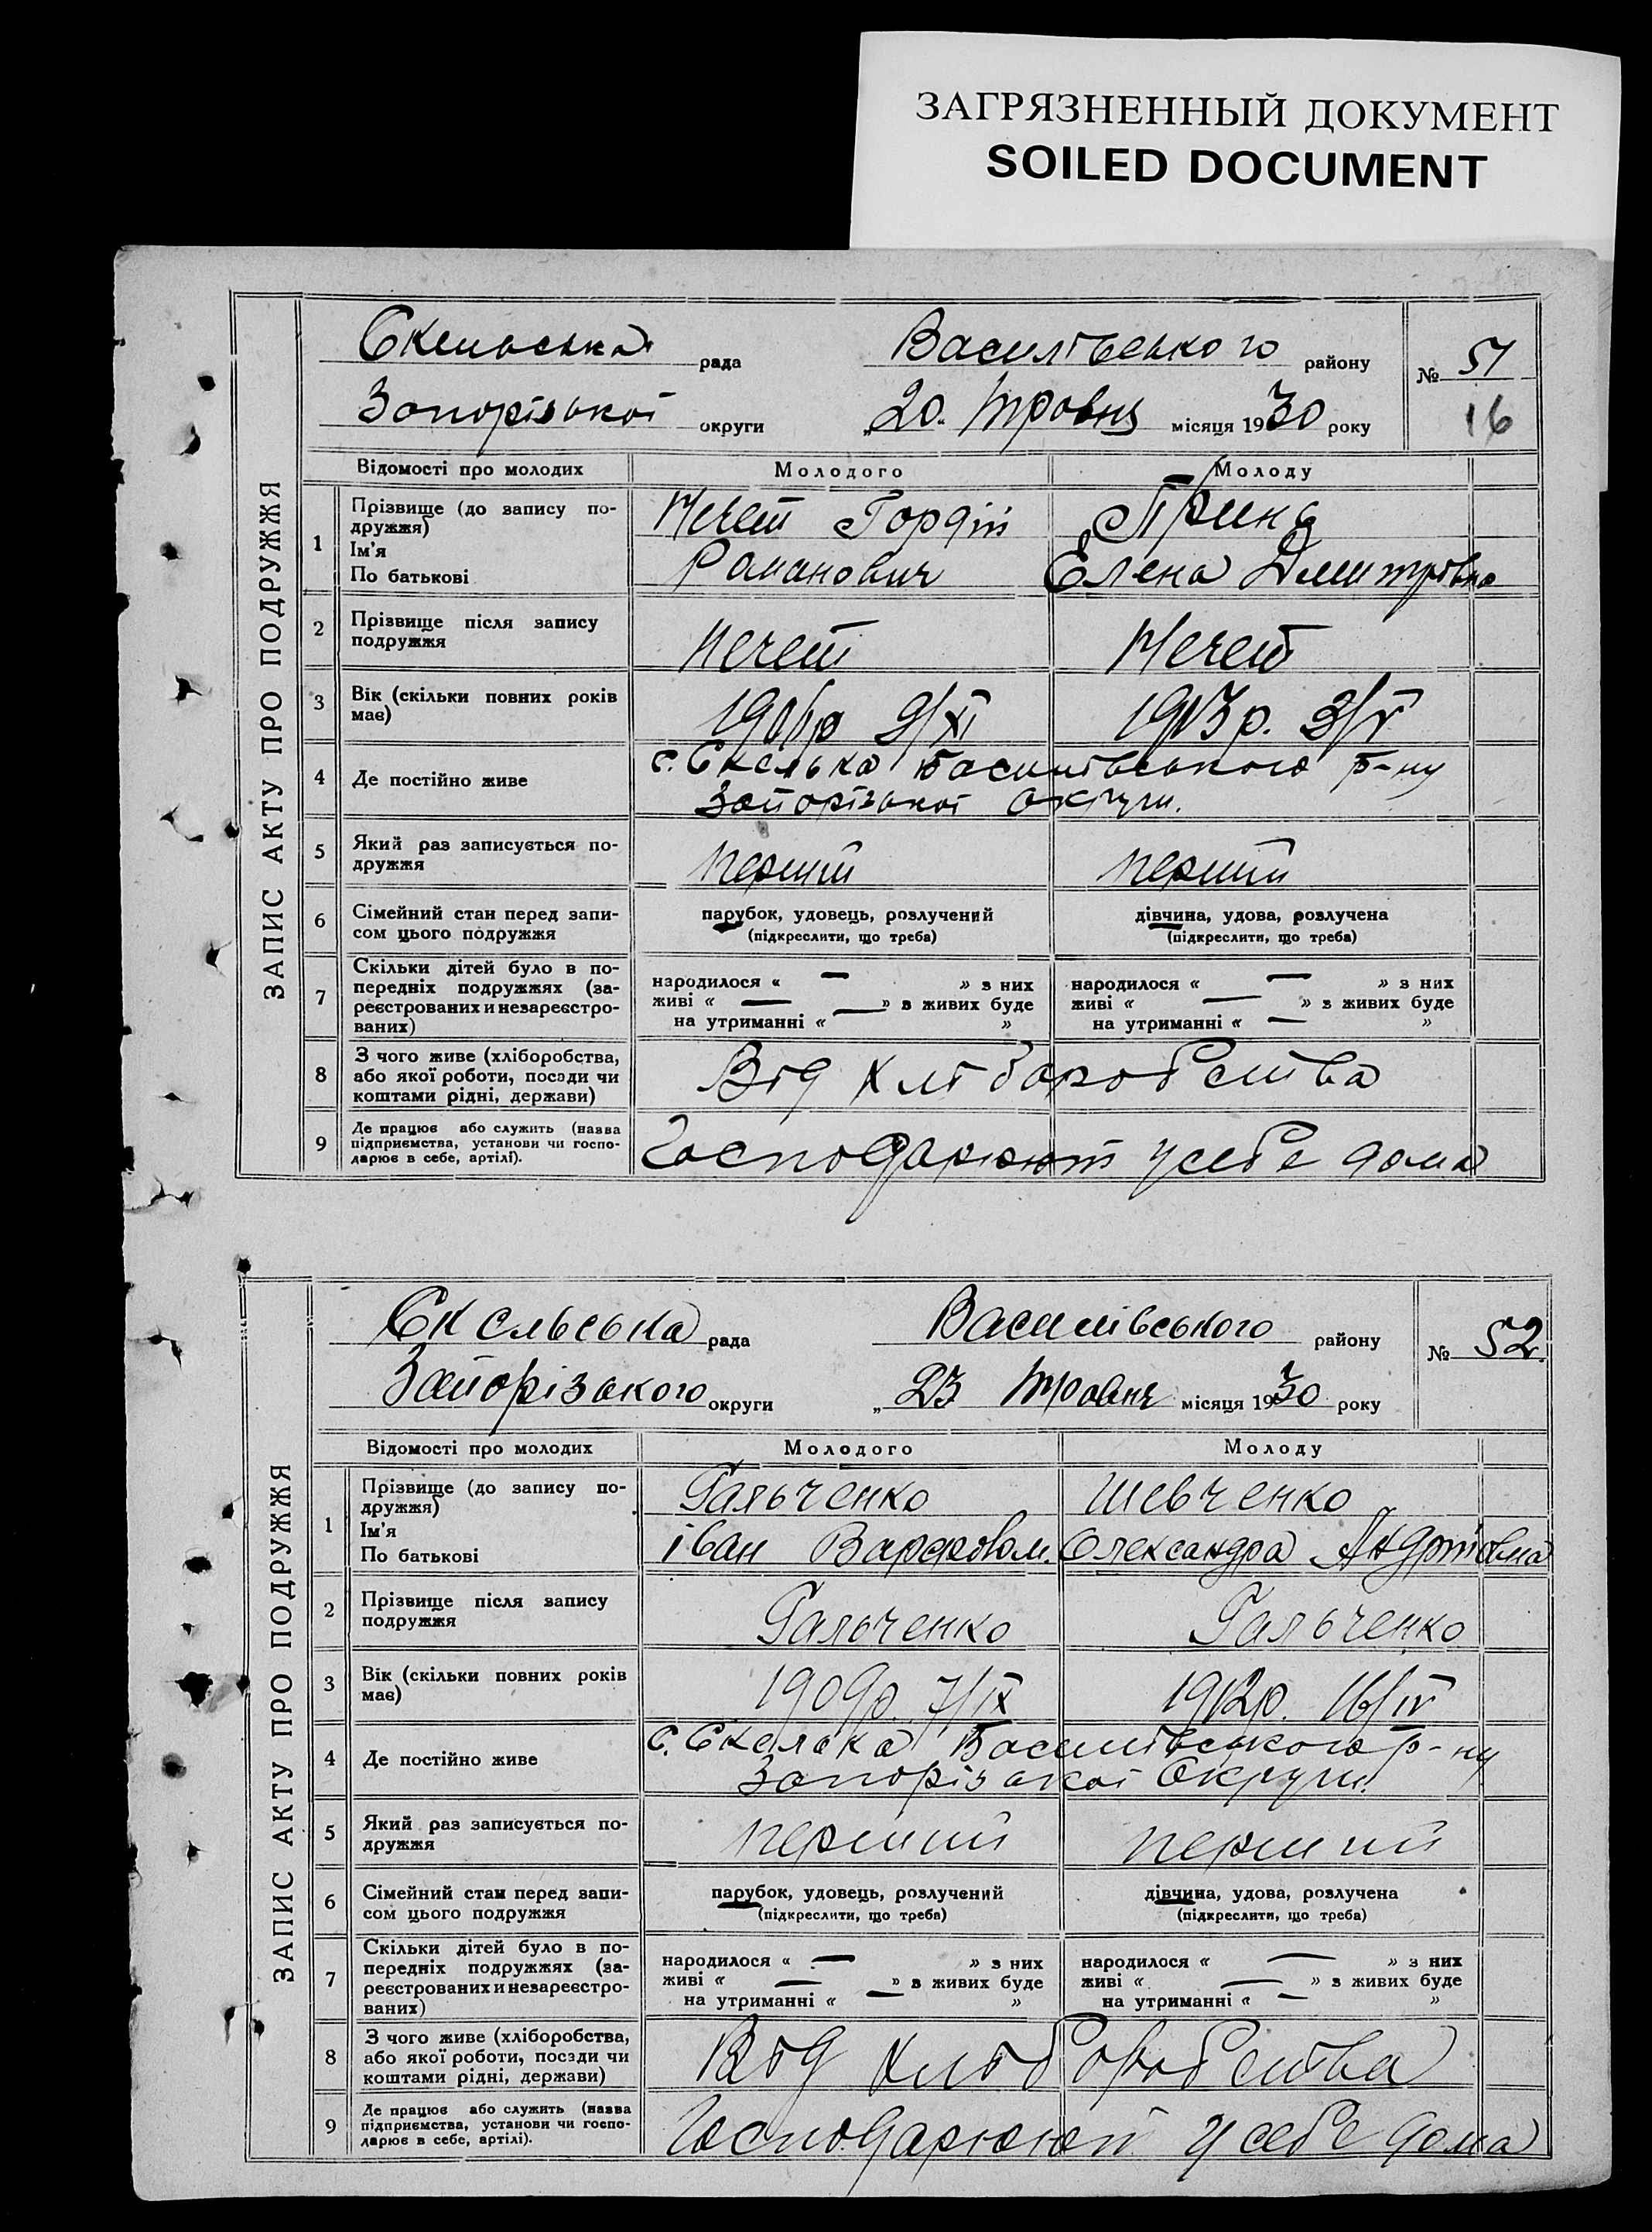 ЗАГРЯЗНЕННЫЙ ДОКУМЕНТ
SOILED DOCUMENT
ЗАПИС АКТУ ПРО ПОДРУЖЖЯ
Скельська рада Василівського району № 51
Запорізької округи „20. Травня місяця 1930 року 16
Відомості про молодих Молодого Молоду
1 Прізвище (до запису по-
дружжя)
Ім'я
По батькові
Мечет Гордій
Романович
Елена Дмитрівна
2 Прізвище після запису
подружжя
Мечет Мечет
3 Вік (скільки повних років
має)
9/XI 1913р. 3/V
4 Де постійно живе
с. Скелька Василівського р-ну
Запорізької округи.
5 Який раз записується по-
дружжя
перший перший
6 Сімейний стан перед запи-
сом цього подружжя
парубок, удовець, розлучений
(підкреслити, що треба)
дівчина, удова, розлучена
(підкреслити, що треба)
7 Скільки дітей було в по-
передніх подружжях (за-
реєстрованих и незареєстро-
ваних)
народилося « — » з них
живі « — » з живих буде
на утриманні « — »
народилося « — » з них
живі « — » з живих буде
на утриманні « — »
8 З чого живе (хліборобства,
або якої роботи, посади чи
коштами рідні, держави)
Від хліборобства
9 Де працює або служить (назва
підприємства, установи чи госпо-
дарює в себе, артілі).
Господарюют у себе дома
ЗАПИС АКТУ ПРО ПОДРУЖЖЯ
Скельська рада Василівського району № 52.
Запорізького округи „23 Травня місяця 1930 року
Відомості про молодих Молодого Молоду
1 Прізвище (до запису по-
дружжя)
Ім'я
По батькові
Гальченко Шевченко
іван Варфолом. Олександра Андріівна
2 Прізвище після запису
подружжя
Гальченко Гальченко
3 Вік (скільки повних років
має)
1909р. 7/IX 1912р. 16/IV
4 Де постійно живе
с. Скелька Василівського р-ну
Запорізької Округи.
5 Який раз записується по-
дружжя
перший перший
6 Сімейний стан перед запи-
сом цього подружжя
парубок, удовець, розлучений
(підкреслити, що треба)
дівчина, удова, розлучена
(підкреслити, що треба)
7 Скільки дітей було в по-
передніх подружжях (за-
реєстрованих и незареєстро-
ваних)
народилося « — » з них
живі « — » з живих буде
на утриманні « — »
народилося « — » з них
живі « — » з живих буде
на утриманні « — »
8 З чого живе (хліборобства,
або якої роботи, посади чи
коштами рідні, держави)
Від хліборобства
9 Де працює або служить (назва
підприємства, установи чи госпо-
дарює в себе, артілі).
Господарюют у себе дома